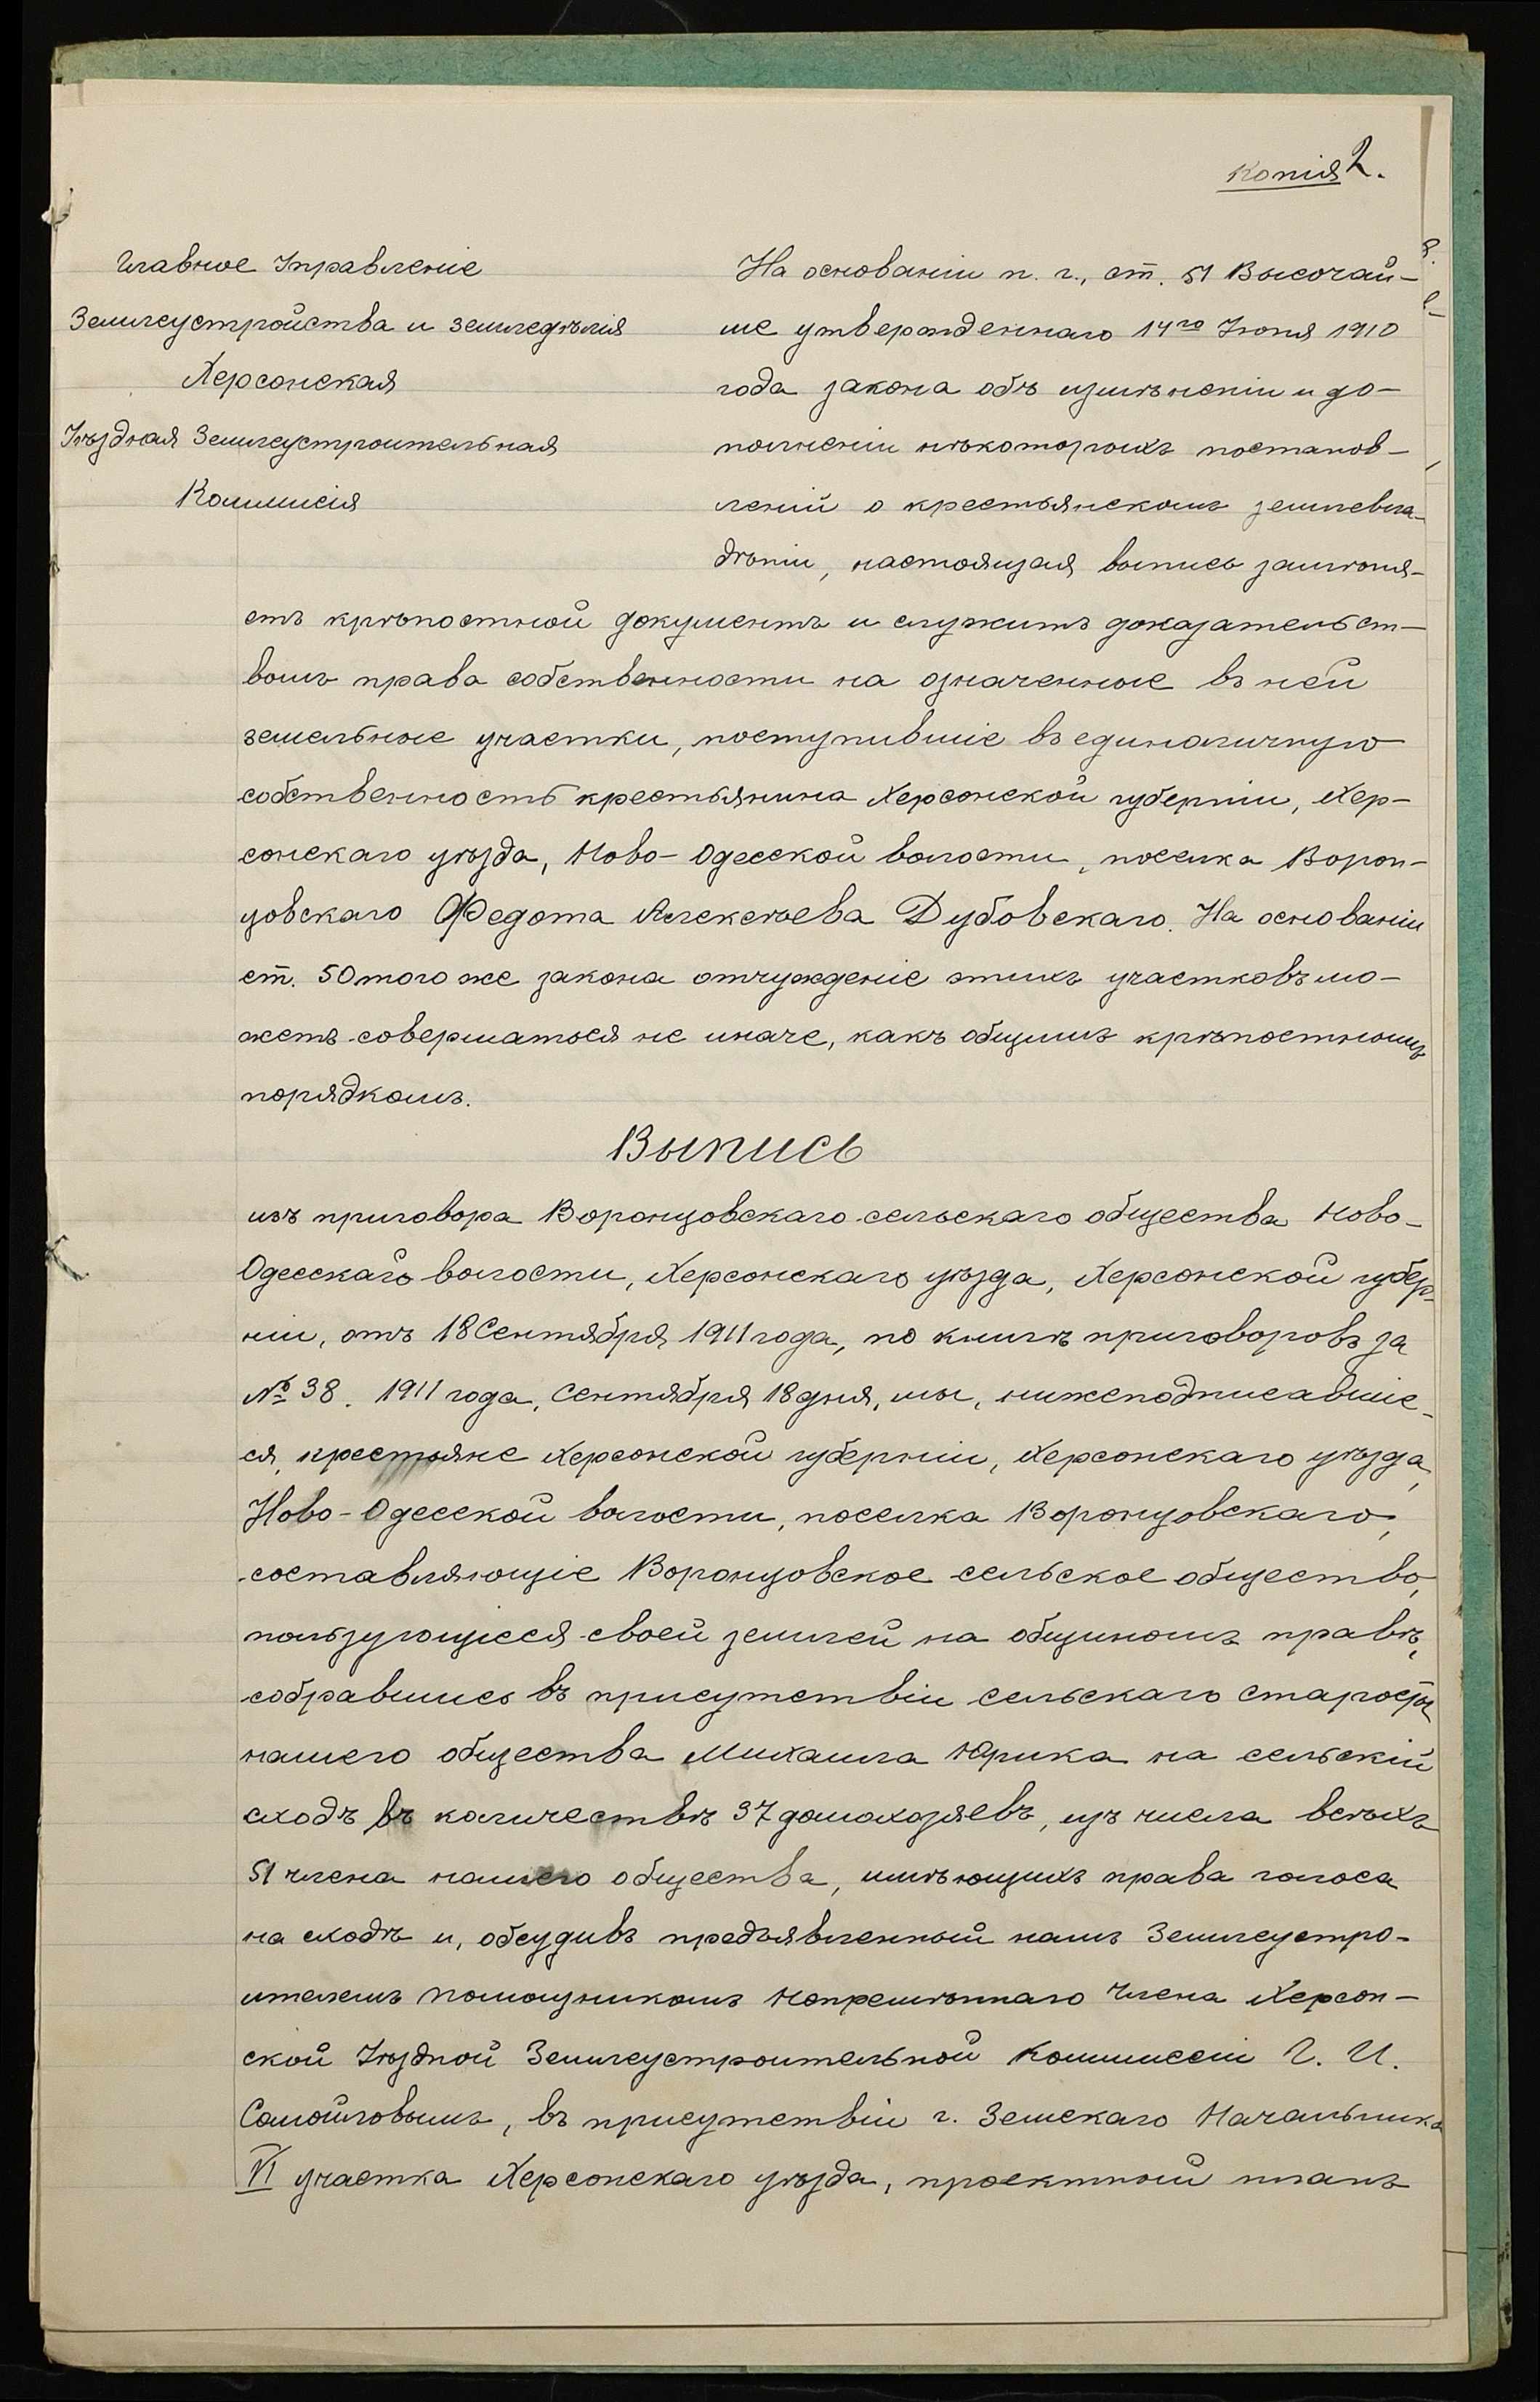 Копія 2.
Главное Управленіе
Землеустройства и земледѣлія
Херсонская
Уѣздная Землеустроительная
Коммисія
На основаніи п. г., ст. 51 Высочай-
ше утвержденнаго 14го Іюня 1910
года закона объ измѣненіи и до-
полненіи нѣкоторыхъ постанов-
леній о крестьянскомъ землевла-
дѣніи, настоящая выпись замѣня-
етъ крѣпостной документъ и служитъ доказательст-
вомъ права собственности на означенные въ ней
земельные участки, поступившіе въ единоличную
собственность крестьянина Херсонской губерніи, Хер-
сонскаго уѣзда, Ново-Одесской волости, поселка Ворон-
цовскаго Федота Алексѣева Дубовскаго. На основаніи
ст. 50 того же закона отчужденіе этихъ участковъ мо-
жетъ совершаться не иначе, какъ общимъ крѣпостнымъ
порядкомъ.
Выпись
изъ приговора Воронцовскаго сельскаго общества Ново-
Одесскаго волости, Херсонскаго уѣзда, Херсонской губер-
ніи, отъ 18 Сентября 1911 года, по книгѣ приговоровъ за
№ 38. 1911 года, Сентября 18 дня, мы, нижеподписавшіе-
ся, крестьяне Херсонской губерніи, Херсонскаго уѣзда,
Ново-Одесской волости, поселка Воронцовскаго,
составляющіе Воронцовское сельское общество,
пользующіеся своей землей на общиномъ правѣ,
собравшись въ присутствіи сельскаго старосты
нашего общества Михаила Юрика на сельскій
сходъ въ количествѣ 37 домохозяевъ, изъ числа всѣхъ
51 члена нашего общества, имѣющихъ права голоса
на сходѣ и, обсудивъ предъявленный намъ Землеустро-
ителемъ Помощникомъ Непремѣннаго Члена Херсон-
ской Уѣздной Землеустроительной Коммиссіи Г. И.
Самойловымъ, въ присутствіи г. Земскаго Начальника
VI участка Херсонскаго уѣзда, проектный планъ